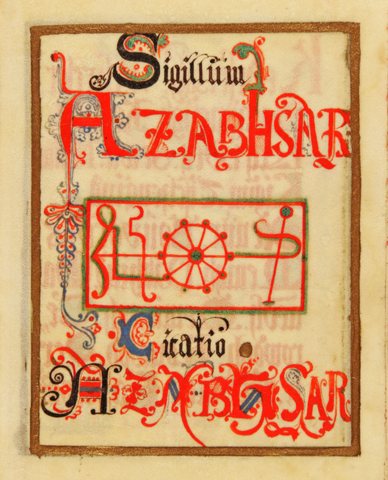 Sigillum
AZABHSAR
Citatio
AZABHSAR